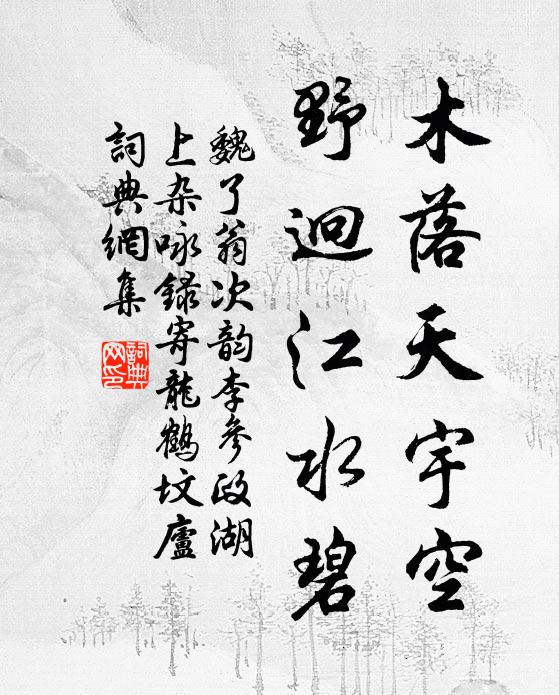 木落天宇空
野迥江水碧
魏了翁次韵李参政湖
上杂咏録寄龍鶴坟廬
詞典網集
詞典
网印